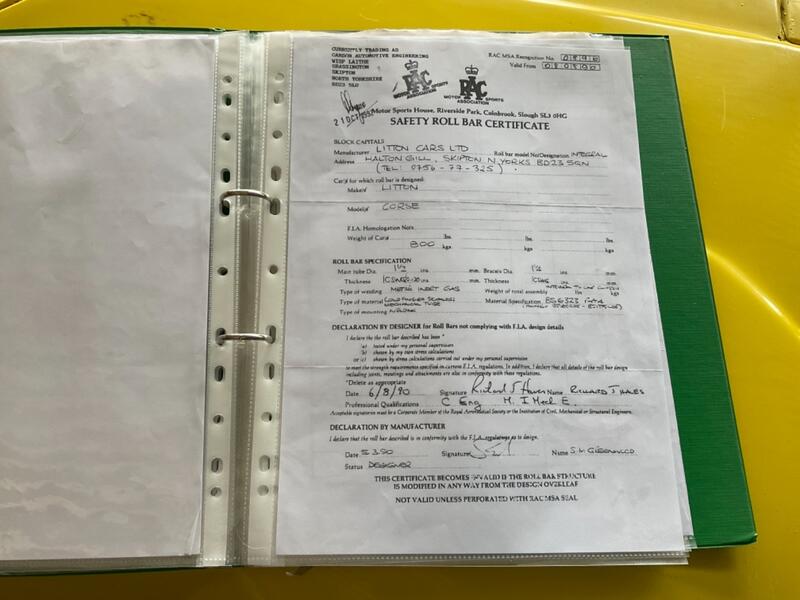 CURRENTLY TRADING AS
CARDOR AUTOMOTIVE ENGINEERING
WISP LAITHE
GRASSINGTON
SKIPTON
NORTH YORKSHIRE
BD23 5LD
RAC MSA Recognition No.
Valid From
RAC
MOTOR SPORTS
ASSOCIATION
RAC
MOTOR SPORTS
ASSOCIATION
21 OCT
Motor Sports House, Riverside Park, Colnbrook, Slough SL3 0HG
SAFETY ROLL BAR CERTIFICATE
BLOCK CAPITALS
Manufacturer LITTON CARS LTD Roll bar model No/Designation INTEGRAL
Address HALTON GILL, SKIPTON N. YORKS BD23 5QN
(TEL: 0756-77-325)
Car/s for which roll bar is designed:
Make/s LITTON
Model/s CORSE
F.I.A. Homologation No/s
Weight of Car/s lbs. lbs. lbs.
800 kgs. kgs. kgs.
ROLL BAR SPECIFICATION
Main tube Dia. 1½ ins. mm. Braces Dia. 1½ ins. mm.
Thickness ins. mm. Thickness ins. mm.
Type of welding METAL INERT GAS Weight of total assembly lbs kgs
Type of material COLD FINISHED SEAMLESS Material Specification BS6323
MECHANICAL TUBE
Type of mounting
DECLARATION BY DESIGNER for Roll Bars not complying with F.I.A. design details
I declare the the roll bar described has been *
(a) tested under my personal supervision
(b) shewn by my own stress calculations
or (c) shewn by stress calculations carried out under my personal supervision
to meet the strength requirements specified in current F.I.A. regulations. In addition, I declare that all details of the roll bar design
including joints, meetings and attachments are also in conformity with these regulations.
*Delete as appropriate
Date 6/8/90 Signature Name RICHARD J
Professional Qualifications C Eng M. I Mech E.
Acceptable signatories must be a Corporate Member of the Royal Aeronautical Society or the Institution of Civil, Mechanical or Structural Engineers.
DECLARATION BY MANUFACTURER
I declare that the roll bar described is in conformity with the F.I.A. regulations as to design.
Date Signature Name S.V. GREENWOOD
Status DESIGNER
THIS CERTIFICATE BECOMES INVALID IF THE ROLL BAR STRUCTURE
IS MODIFIED IN ANY WAY FROM THE DESIGN OVERLEAF
NOT VALID UNLESS PERFORATED WITH RAC MSA SEAL